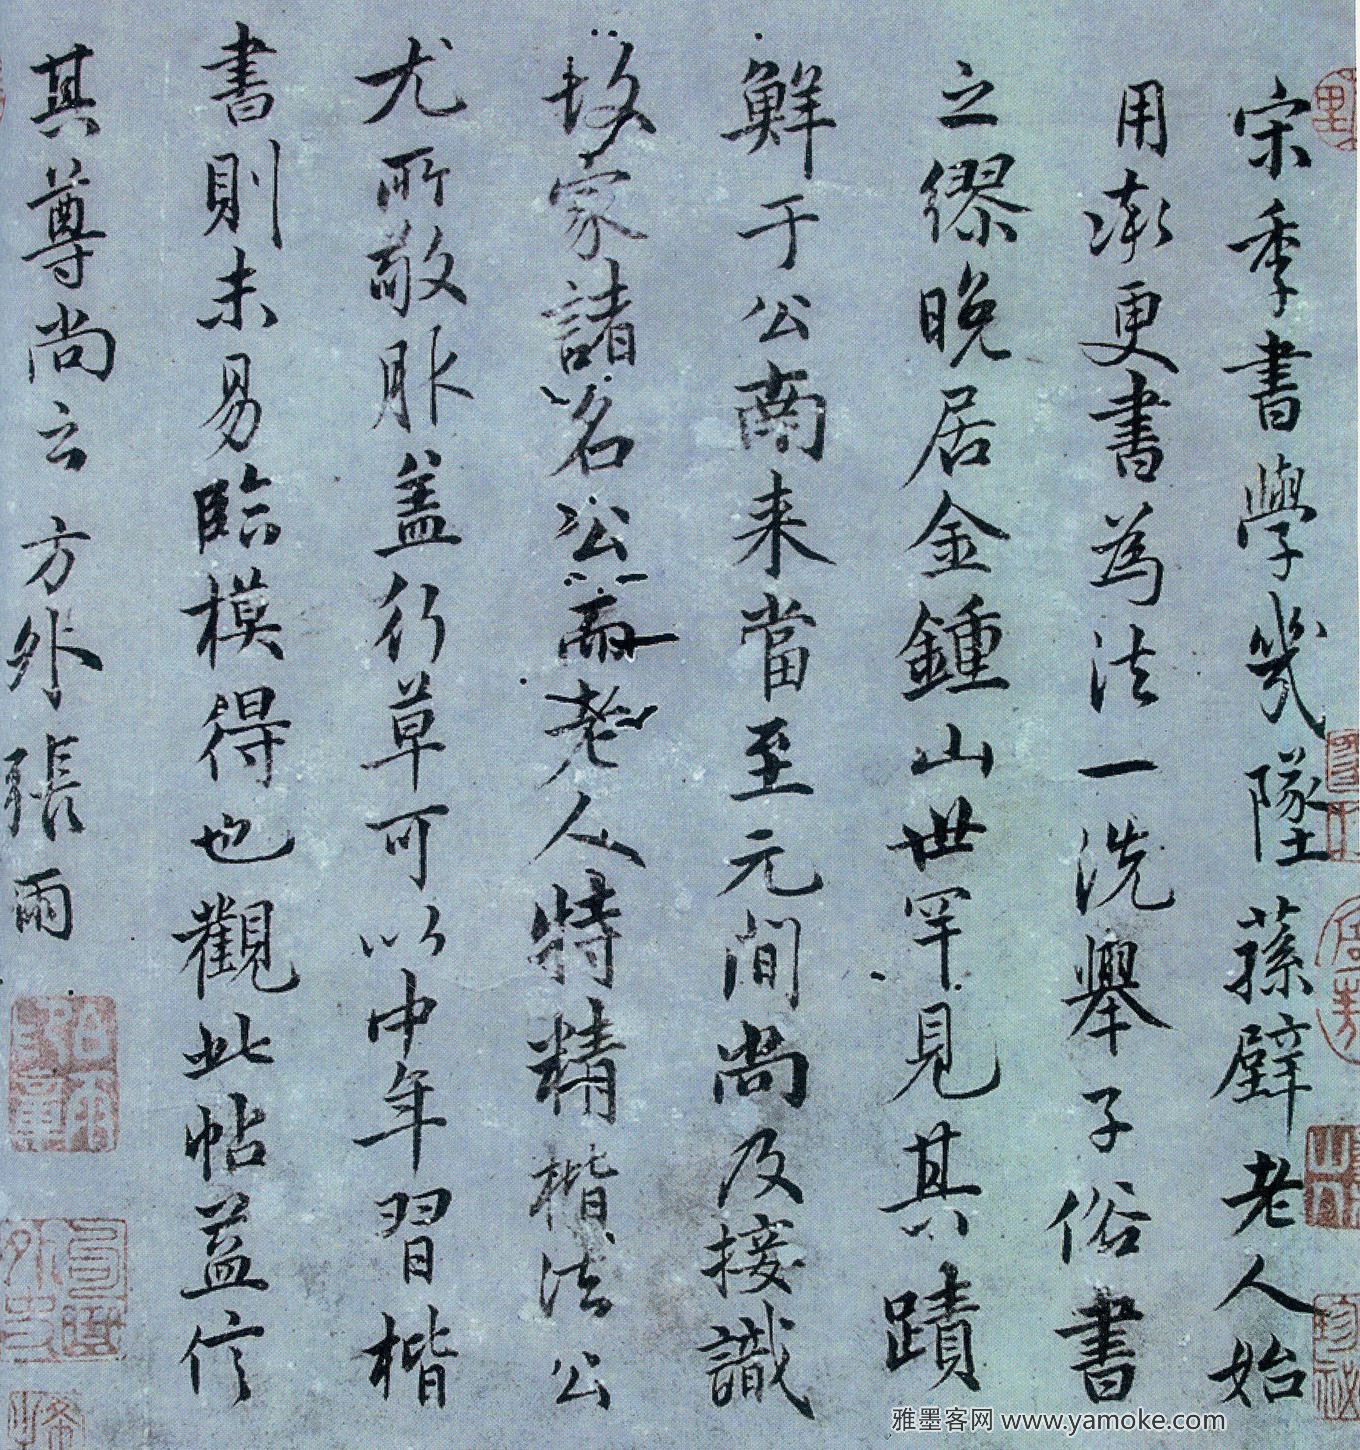 宋季書學幾墜蓀壁老人始
用漸更書為法一洗舉子俗書
之繆晚居金鍾山世罕見其蹟
鮮于公南来當至元間尚及接識
故家諸名公而老人特精楷法公
尤所敬服盖行草可以中年習楷
書則未易臨模得也觀此帖益信
其尊尚云方外張雨
雅墨客网 www.yamoke.com